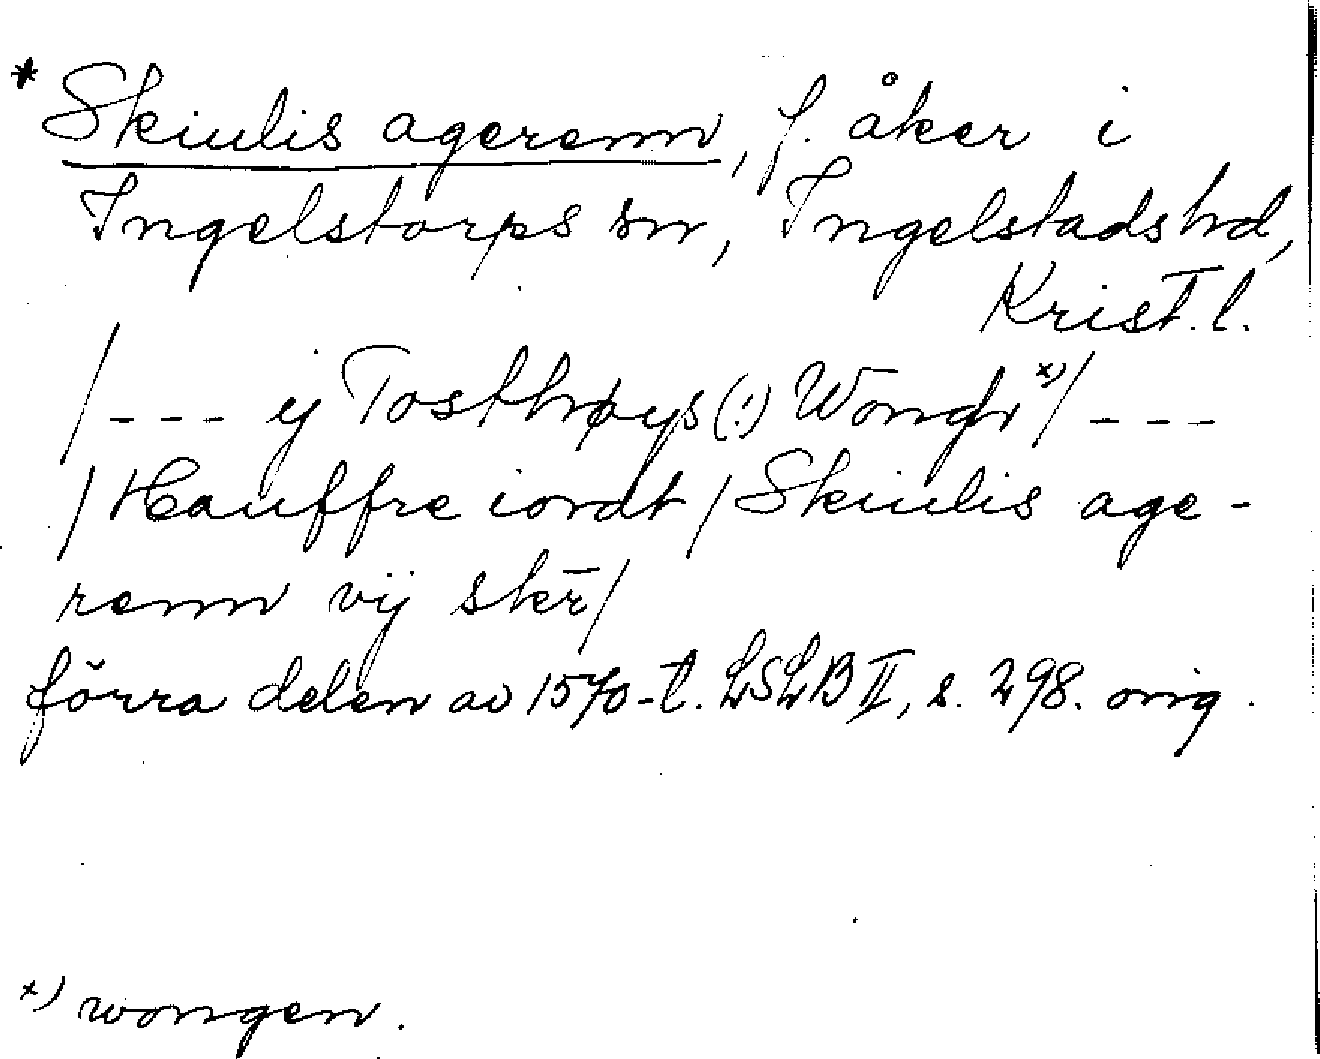 * Skiulis agerenn, f. åker i
Ingelstorps sn, Ingelstads hd,
Krist. l.
/--- ij Tosthrøys(!) Wongh x)/ ---
/ Hauffre iordt / Skiulis age-
renn vij skr̄ /
förra delen av 1570-t. LSLB II, s. 298. orig.
x) wongen.